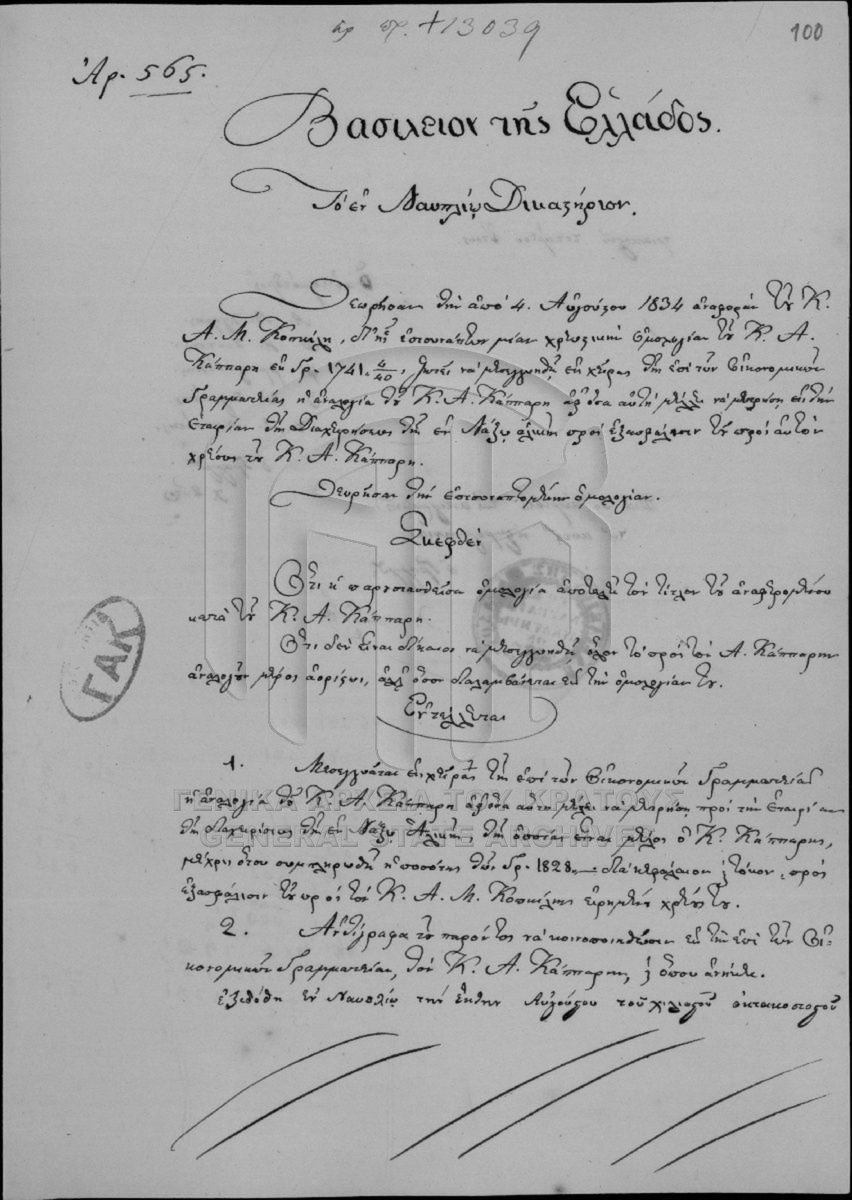 ἀρ πρ. +13039
100
Ἀρ. 565.
Βασίλειον τῆς Ἑλλάδος.
Τὸ ἐν Ναυπλίῳ Δικαστήριον.
Θεωρῆσαν τὴν ἀπὸ 4. Αὐγούστου 1834 ἀναφορὰν τοῦ Κ.
Α. Μ. Κοπιλη, δι' ἧς ἐπισυνάπτων μίαν χρεωστικὴν ὁμολογίαν τοῦ Κ. Α.
Κάππαρη ἐκ Γρ. 1741. 4/40, ζητεῖ νὰ μεσεγγυηθῇ εἰς χεῖρας τῆς ἐπὶ τῶν Οἰκονομικῶν
Γραμματείας ἡ ἀναλογία τοῦ Κ. Α. Κάππαρη ἀφ' ὅσα αὐτὴ μέλλει νὰ μετρήσῃ εἰς τὴν
ἑταιρίαν τῆς Διαχειρήσεως τῆς ἐν Νάξῳ ἁλικῆς πρὸς ἐξασφάλισιν τοῦ πρὸς αὐτὸν
χρέους τοῦ Κ. Α. Κάππαρη.
Θεωρῆσαν τὴν ἐπισυναπτομένην ὁμολογίαν.
Σκεφθὲν
Ὅτι ἡ παρουσιασθεῖσα ὁμολογία ἀποτελεῖ τὸν τίτλον τοῦ ἀναφερομένου
κατὰ τοῦ Κ. Α. Κάππαρη.
Ὅτι δὲν εἶναι δίκαιον νὰ μεσεγγυηθῇ ὅλον τὸ πρὸς τὸν Α. Κάππαρην
ἀναλογοῦν μέρος ἀορίστως, ἀλλ' ὅσον διαλαμβάνεται εἰς τὴν ὁμολογίαν του.
Ἐντέλλεται
1. Μεσεγγυᾶται εἰς χεῖρας τῆς ἐπὶ τῶν Οἰκονομικῶν Γραμματείας
ἡ ἀναλογία τοῦ Κ. Α. Κάππαρη ἀφ' ὅσα αὐτὴ μέλλει νὰ μετρήσῃ πρὸς τὴν ἑταιρίαν
τῆς διαχειρίσεως τῆς ἐν Νάξῳ Ἁλικῆς, τῆς ὁποίας εἶναι μέλος ὁ Κ. Κάππαρης,
μέχρις ὅτου συμπληρωθῇ ἡ ποσότης τῶν Γρ. 1828 διὰ κεφάλαιον καὶ τόκον, πρὸς
ἐξασφάλισιν τοῦ πρὸς τὸν Κ. Α. Μ. εἰρημένου χρέους του.
2. Ἀντίγραφα τοῦ παρόντος νὰ κοινοποιηθῶσιν εἰς τὴν ἐπὶ τῶν Οἰ-
κονομικῶν Γραμματείαν, τὸν Κ. Α. Κάππαρην, καὶ ὅπου ἀνήκει.
Ἐξεδόθη ἐν Ναυπλίῳ τὴν ἕκτην Αὐγούστου τοῦ χιλιοστοῦ ὀκτακοσιοστοῦ
ΓΑΚ
ΓΕΝΙΚΑ ΑΡΧΕΙΑ ΤΟΥ ΚΡΑΤΟΥΣ
GENERAL STATE ARCHIVES